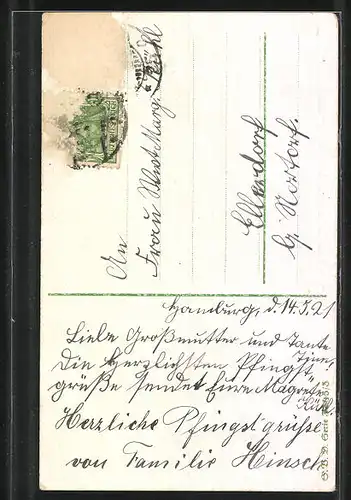 An
Frau Wwe Marg. Rühl
Ellerdorf
b. Nortorf.
Hamburg, d. 14.5.21
Liebe Großmutter und Tante
Tine!
Die herzlichsten Pfingst
grüße sendet Eure Magreta
Rühl
Herzliche Pfingstgrüße
von Familie Hinsch
Serie